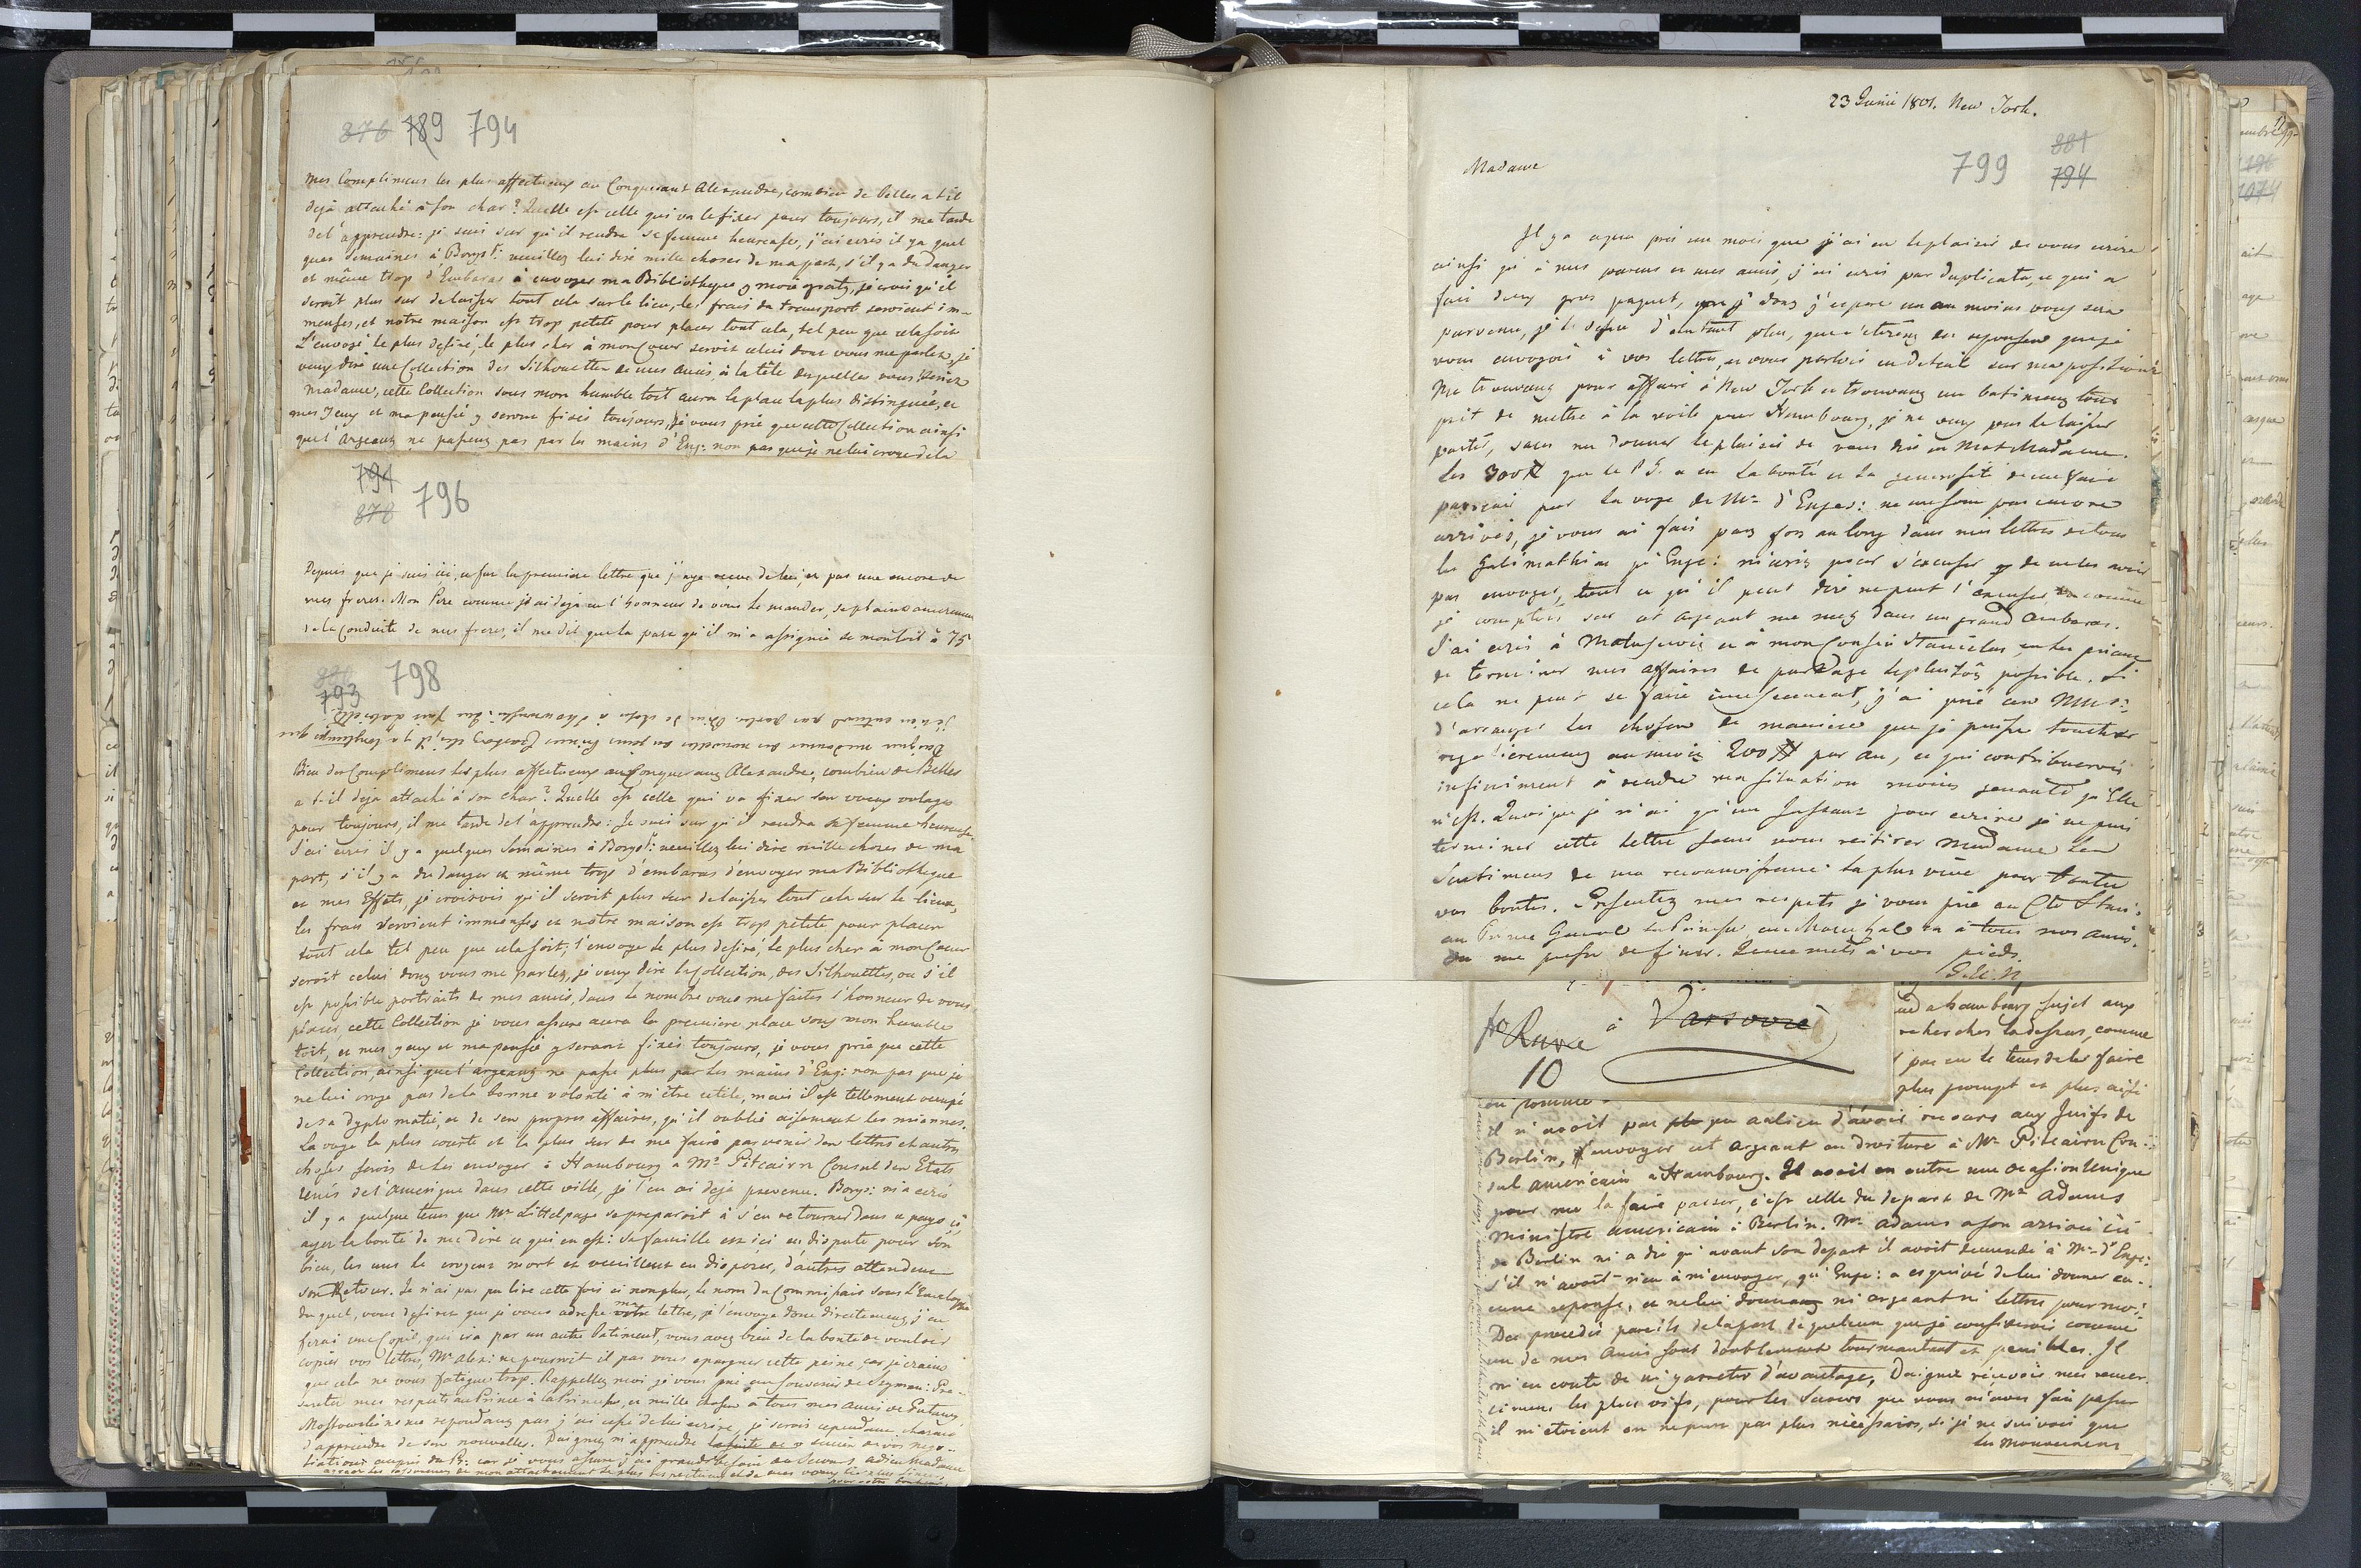 876 789 794
Mes Complimens les plus affectueux au Conquerant Alexandre, combien de Belles a t-il
deja attaché à son char? Quelle est celle qui va le fixer pour toujours, il me tarde
de l'apprendre: je suis sur qu'il rendra sa femme heureuse, j'ai ecris il y a quel
ques semaines à Borys: veuillez lui dire mille choses de ma part, s'il y a du danger
et même trop d'Embaras à envoyer ma Bibliotheque je crois qu'il
seroit plus sur de laisser tout cela sur le lieu, les frais du transport seroient im-
menses, et notre maison est trop petite pour placer tout cela, tel peu que cela soit
L'envoye le plus desiré, le plus cher à mon Coeur seroit celui dont vous me parlez, je
veux dire une Collection des Silhouettes de mes amis, à la tête desquelles vous seriez
Madame, cette Collection sous mon humble toit aura la place la plus distinguée, et
mes Yeux et ma pensée y seront fixés toujours, je vous prie que cette Collection ainsi
que l'argeant ne passent pas par les mains d'Eng: non pas que je ne lui croye de la
794
878 796
Depuis que je suis ici, ce fut la premiere lettre que j'aye recue de lui, et pas une encore de
mes freres. Mon Pere comme j'ai deja eu l'honneur de vous le mander, se plaint amerement
de la Conduite de mes freres, il me dit que la part qu'il m'a assignée se montoit à 75
880
793 798
Daignez me donner des nouvelles du jeune Prince, il y a longtems que
Bien des Complimens les plus affectueux au Conquerant Alexandre, combien de Belles
a t-il deja attaché à son char? Quelle est celle qui va fixer son voeux volage
pour toujours, il me tarde de l'apprendre: Je suis sur qu'il rendra sa femme heureuse.
J'ai ecris il y a quelques semaines à Borys: veuillez lui dire mille choses de ma
part, s'il y a du danger et même trop d'embaras d'envoyer ma Bibliotheque
et mes Effets, je croirois qu'il seroit plus sur de laisser tout cela sur le lieux,
les frais seroient immenses et notre maison est trop petite pour placer
tout cela tel peu que cela soit; l'envoye le plus desiré, le plus cher à mon Coeur
seroit celui dont vous me parlez, je veux dire la Collection, des Silhouettes, ou s'il
est possible portraits de mes amis, dans le nombre vous me faites l'honneur de vous
placer, cette Collection je vous assure aura la premiere place sous mon humble
toit, et mes yeux et ma pensée y seront fixés toujours, je vous prie que cette
Collection, ainsi que l'argeant ne passe plus par les mains d'Eng: non pas que je
ne lui croye pas de la bonne volonté à m'être utile, mais il est tellement occupé
de sa dyplomatie, et de ses propres affaires, qu'il oublie aisement les miennes.
La voye la plus courte et la plus sur de me faire parvenir des lettres et autres
choses seroit de les envoyer à Hambourg a Mr Pitcairn Consul des Etats
Unis de l'Amerique dans cette ville, je l'en ai deja prevenu. Borys: m'a ecris
il y a quelque tems que Mr Littelpage se preparoit à s'en retourner dans ce pays ci,
ayez la bonté de me dire ce qui en est: sa famille est ici en dispute pour son
bien, les uns le croyent mort et veuillent en disposer, d'autres attendent
son Retour. Je n'ai pas pu lire cette fois ci non plus, le nom du Commissair sous l'Enveloppe
du quel, vous desirez que je vous adresse ma votre lettre, je l'envoye donc directement, j'en
ferai une Copie, qui ira par un autre Batiment, vous avez bien de la bonté de vouloir
copier vos lettres, Mr Alex: ne pourroit il pas vous epargner cette peine, car je crains
que cela ne vous fatigue trop. Rappellez moi je vous prie au souvenir de Seymon: Pre-
sentez mes respects au Prince à la Princesse, et mille choses à tous mes amis
Mostowski ne me repondant pas j'ai cessé de lui ecrire, je serois cependant charmé
d'apprendre de ses nouvelles. Daignez m'apprendre la suite de vos nego-
tiations aupres du P: car je vous assure j'ai grand besoin de secours adieu Madame
23 Junii 1801. New York.
881
799 794
Madame
Il y a apeu près un mois que j'ai eu le plaisir de vous ecrire
ainsi qu'à mes parens et mes amis, j'ai ecris par duplicata, ce qui a
fait deux gros paquet, dont j'espere un au moins vous sera
parvenu, je le desire d'autant plus, que c'etoient des reponses que je
vous envoyois à vos lettres, et vous parlois en detail sur ma position.
Me trouvant pour affaire à New York et trouvant un batiment tout
prêt de mettre à la voile pour Hambourg, je ne veux pas le laisser
partir, sans me donner le plaisir de vous dire un Mot Madame.
Les 300 # que le P G. a eu la bonté et la generosité de me faire
parvenir par la voye de Mr d'Enges: ne me sont pas encore
arrivés, je vous ai fais part fort au long dans mes lettres de tous
les Galimathias qu'Enge: m'ecris pour s'excuser de ne les avoir
pas envoyer, tout ce qu'il peut dire ne peut l'excuser, et comme
je comptois sur cet argeant me met dans un grand embaras.
J'ai ecris à Matuszewic et à mon Cousin Stanislas, en les priant
de terminer mes affaires de partage le plustôt possible. Si
cela ne peut se faire incessement, j'ai prié ces Mrs:
d'arranger les choses de maniere que je puisse toucher
regulierement au moins 200 # par an, ce qui contribueroit
infiniment à rendre ma situation moins genante qu'Elle
n'est. Quoique je n'ai qu'un Instant pour ecrire je ne puis
terminer cette lettre sans vous reiterer Madame les
Sentimens de ma reconnoissance la plus vive pour toutes
vos bontés. Presentez mes respets je vous prie au Cte Stani:
au Prince General la Princesse, au Marechal et à tous nos amis.
On me presse de finir. Je me mets à vos pieds
J. U. N.
fco Rawe à Varsovie
10
a Hambourg sujet aux
recherches la dessus, comme
pas eu le tems de les faire
plus prompt et plus aisé
il n'avoit pas au lieu d'avoir recours aux Juifs de
Berlin, envoyer cet argeant en droiture à Mr Pitcairn Con-
sul américain a Hambourg. Il avoit en outre une ocasion Unique
pour me la faire passer, c'est celle du depart de Mr Adams
Ministre américain à Berlin. Mr Adams a son arrivé ici
de Berlin m'a dit qu'avant son depart il avoit demandé à Mr d'Enge:
s'il n'avoit rien à m'envoyer, qu'Enge: a esquivé de lui donner au-
cune reponse, et ne lui donnant ni argeant ni lettre pour moi.
Des procedés pareils de la part de quelcun que je considerois comme
un de mes Amis sont doublement tourmentant et penibles. Il
m'en coute de m'y arreter d'avantage, Daignez récevoir mes remer-
cimens les plus vifs, pour les Secours que vous m'avez fait passer
il m'etoient on ne peut pas plus nécessaires, si je ne suivois que
les mouvemens